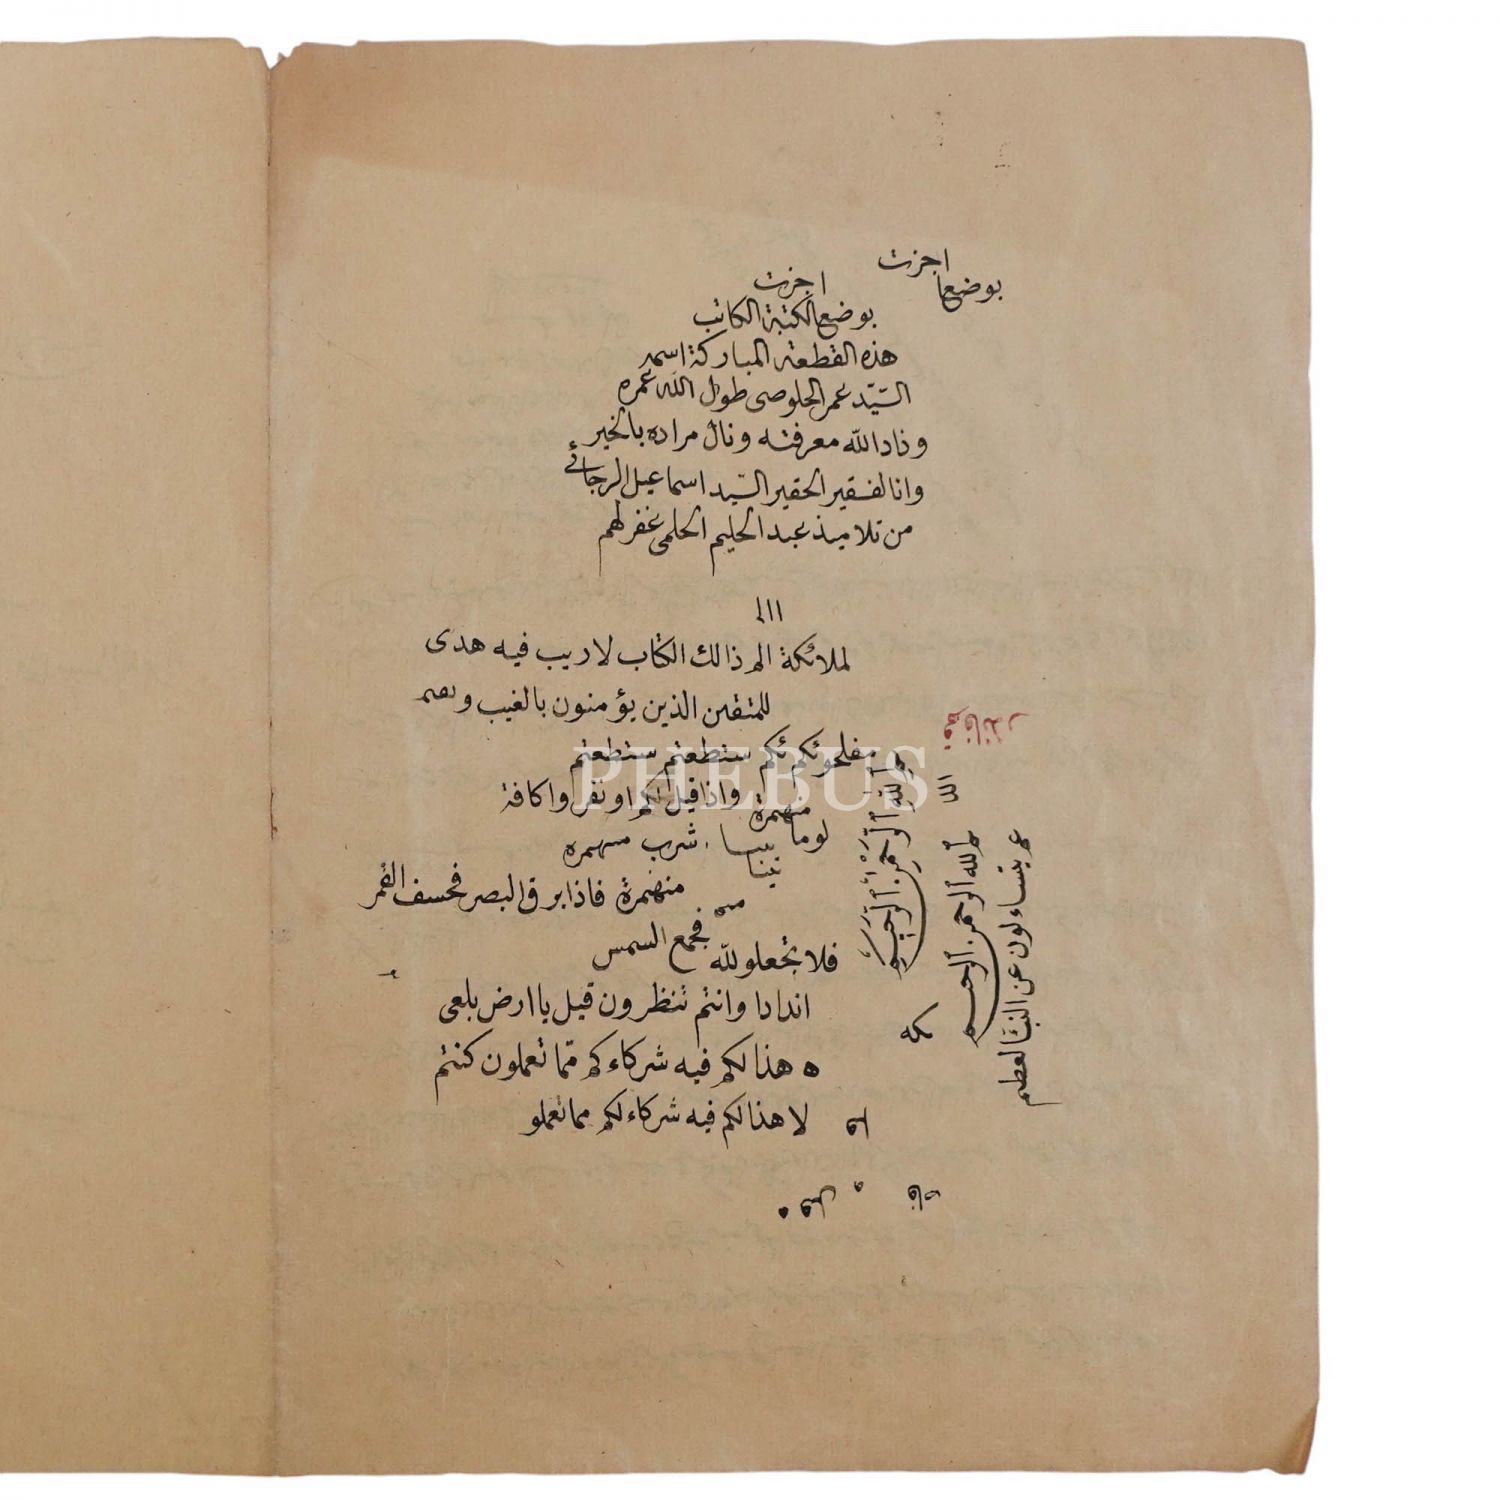 اجزت
بوضعا
اجزت
بوضع الكتبة الكاتب
هذه القطعة المباركة اسمه
السّيّد عمر الخلوصى طول الله عمره
وزاد الله معرفته ونال مراده بالخير
وانا لفقير الحقير السّيد اسماعيل الرجائى
من تلاميذ عبد الحليم الحلمى غفر لهم
ااا
لملائكة الم ذالك الكتاب لا ريب فيه هدى
للمتقىن الذين يؤمنون بالغيب و
مفلحو ئكم ئكم ستطعتم ستطعتم
منهمرة واذا قيل لكم او نفرو اكافة
لوما شرب منهمره
منهمرة فاذا برق البصر فخسف القمر
فجمع السمس
فلا تجعلو لله
اندادا وانتم تنظرون قيل يا ارض بلعى
ه هذا لكم فيه شركاءكم ممّا تعملون كنتم
لا هذا لكم فيه شركاء لكم مما تعملو
PHEBUS
الله الرّحمن الرّحيم
الله الرحمن الرحيم
عم يتساءلون عن النبأ لعظيم